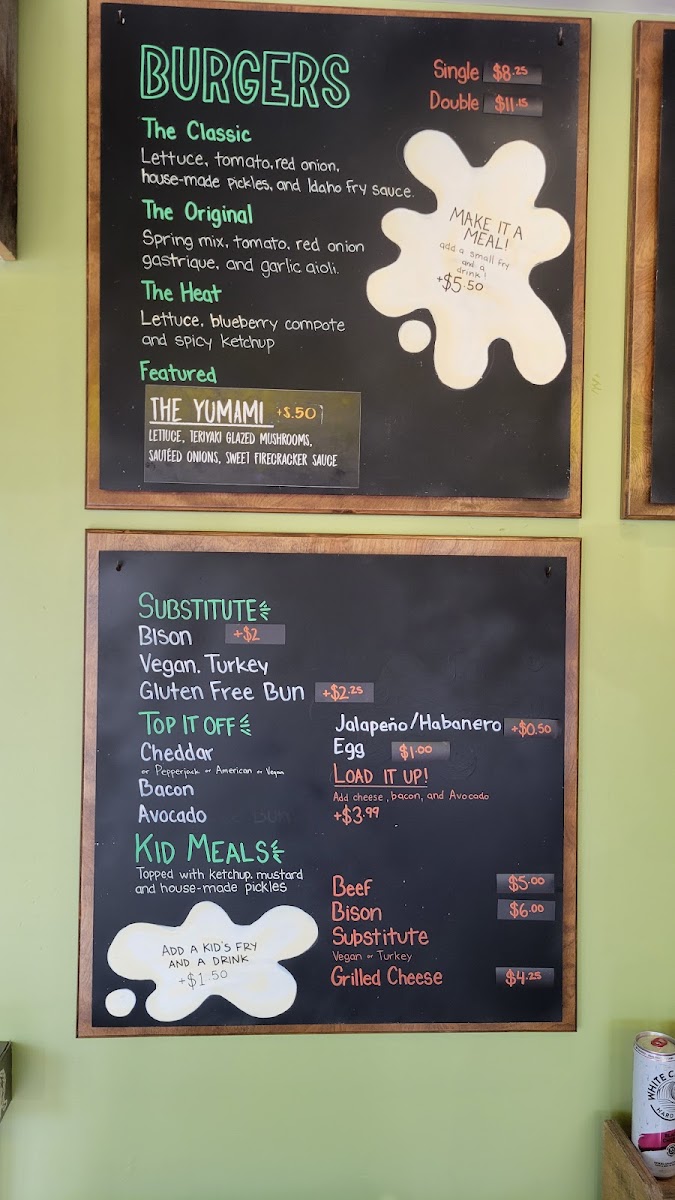 BURGERS
Single $8.25
Double $11.15
The Classic
Lettuce, tomato, red onion,
house-made pickles, and Idaho fry sauce.
The Original
Spring mix, tomato, red onion
gastrique, and garlic aioli.
The Heat
Lettuce, blueberry compote
and spicy ketchup
Featured
THE YUMAMI +$.50
LETTUCE, TERIYAKI GLAZED MUSHROOMS,
SAUTÉED ONIONS, SWEET FIRECRACKER SAUCE
MAKE IT A
MEAL!
add a small fry
and a
drink!
+$5.50
SUBSTITUTE
Bison +$2
Vegan, Turkey
Gluten Free Bun +$2.25
TOP IT OFF
Cheddar
or Pepperjack or American or Vegan
Bacon
Avocado
Jalapeño/Habanero +$0.50
Egg $1.00
LOAD IT UP!
Add cheese, bacon, and Avocado
+$3.99
KID MEALS
Topped with ketchup, mustard
and house-made pickles
ADD A KID'S FRY
AND A DRINK
+$1.50
Beef $5.00
Bison $6.00
Substitute
Vegan or Turkey
Grilled Cheese $4.25
WHITE
HARD